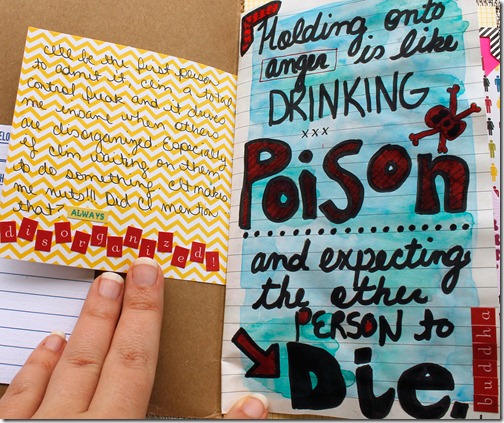 I'll be the first person
to admit it, I'm a total
control freak and it drives
me insane when others
are disorganized especially
if I'm waiting on them
to do something. It makes
me nuts!!! Did I mention
that? ALWAYS
disorganized!
Holding onto
anger is like
DRINKING
xxx
Poison
and expecting
the other
PERSON to
Die.
buddha